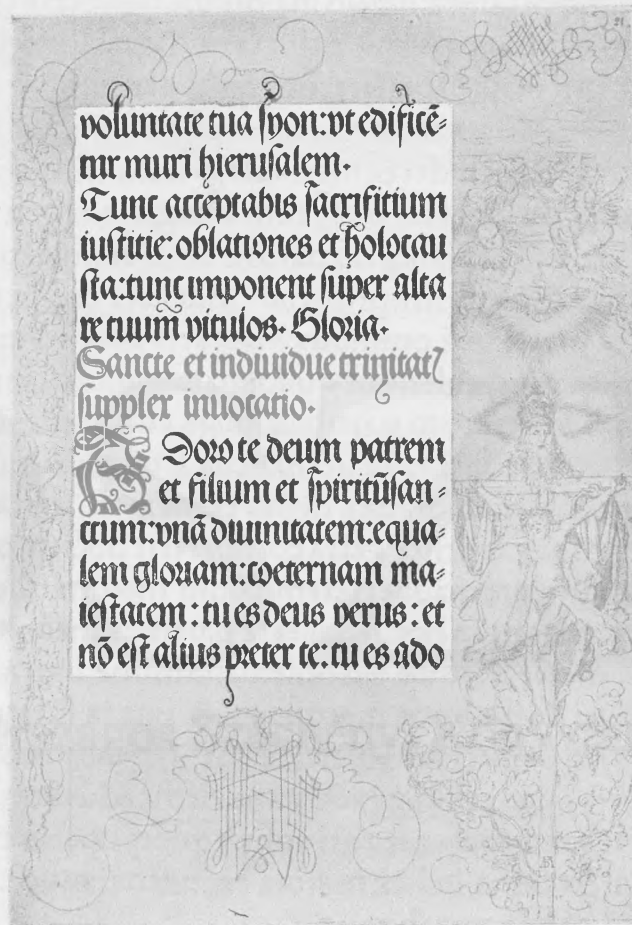 21
voluntate tua syon: vt edificē⸗
tur muri hierusalem.
Tunc acceptabis sacrifitium
iustitie: oblationes et holocau
sta: tunc imponent super alta
re tuum̄ vitulos. Gloria.
Sancte et indiuidue trinitatꝭ
supplex inuocatio.
ADoro te deum patrem
et filium et spiritūsan⸗
ctum: vnā diuinitatem: equa⸗
lem gloriam: coeternam ma⸗
iestatem: tu es deus verus: et
nō est alius preter te: tu es ado